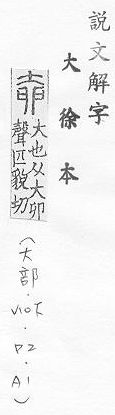 說文解字
大徐本
奅
大也从大卯
聲匹貌切
(大部.V10下.P2.A1)